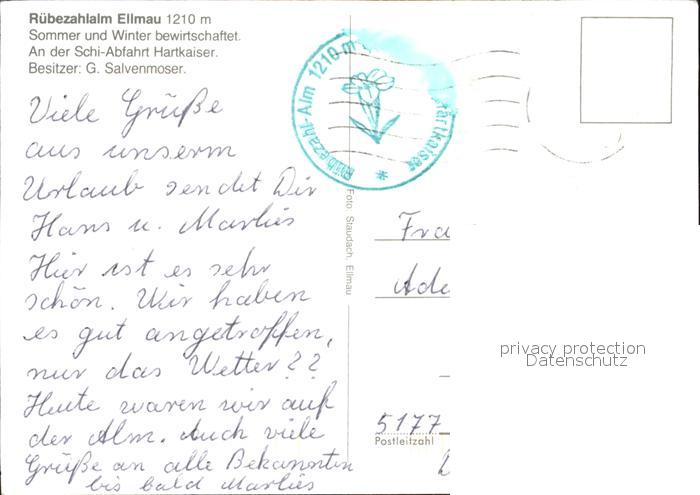 Rübezahlalm Ellmau 1210 m
Sommer und Winter bewirtschaftet.
An der Schi-Abfahrt Hartkaiser.
Besitzer: G. Salvenmoser.
Viele Grüße
aus unserm
Urlaub sendet Dir
Hans u. Marlies
Hier ist es sehr
schön. Wir haben
es gut angetroffen,
nur das Wetter??
Heute waren wir auf
der Alm. Auch viele
Grüße an alle Bekannten
bis bald Marlies
Rübezahl-Alm 1210 m
Hartkaiser
Foto: Staudach, Ellmau
Fra
Ade
privacy protection
Datenschutz
5177
Postleitzahl